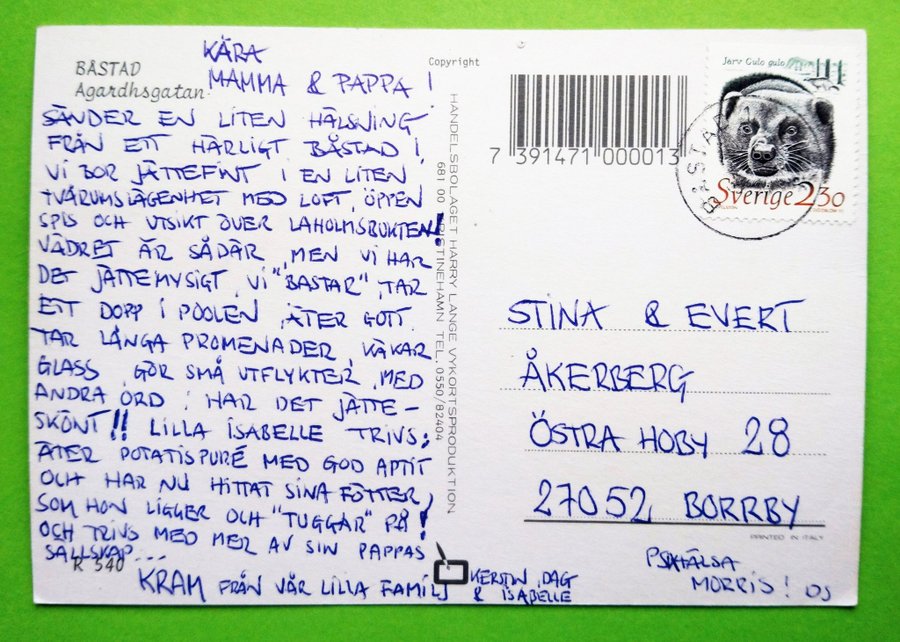 BÅSTAD
Agardhsgatan
KÄRA
MAMMA & PAPPA!
SÄNDER EN LITEN HÄLSNING
FRÅN ETT HÄRLIGT BÅSTAD!
VI BOR JÄTTEFINT I EN LITEN
TVÅRUMSLÄGENHET MED LOFT, ÖPPEN
SPIS OCH UTSIKT ÖVER LAHOLMSBUKTEN!
VÄDRET ÄR SÅDÄR, MEN VI HAR
DET JÄTTEMYSIGT, VI "BASTAR", TAR
ETT DOPP I POOLEN, ÄTER GOTT,
TAR LÅNGA PROMENADER, KÄKAR
GLASS, GÖR SMÅ UTFLYKTER, MED
ANDRA ORD: HAR DET JÄTTE-
SKÖNT!! LILLA ISABELLE TRIVS;
ÄTER POTATISPURÉ MED GOD APTIT
OCH HAR NU HITTAT SINA FÖTTER,
SOM HON LIGGER OCH "TUGGAR" PÅ!
OCH TRIVS MED MER AV SIN PAPPAS
SÄLLSKAP...
R 540
KRAM FRÅN VÅR LILLA FAMILJ
KERSTIN, DAG
& ISABELLE
Copyright
HANDELSBOLAGET HARRY LANGE VYKORTSPRODUKTION
681 00 KRISTINEHAMN TEL. 0550/82404
7 391471 000013
Järv Gulo gulo
Sverige 2.30
BÅSTAD
STINA & EVERT
ÅKERBERG
ÖSTRA HOBY 28
27052 BORRBY
PRINTED IN ITALY
HÄLSA
MORRIS!